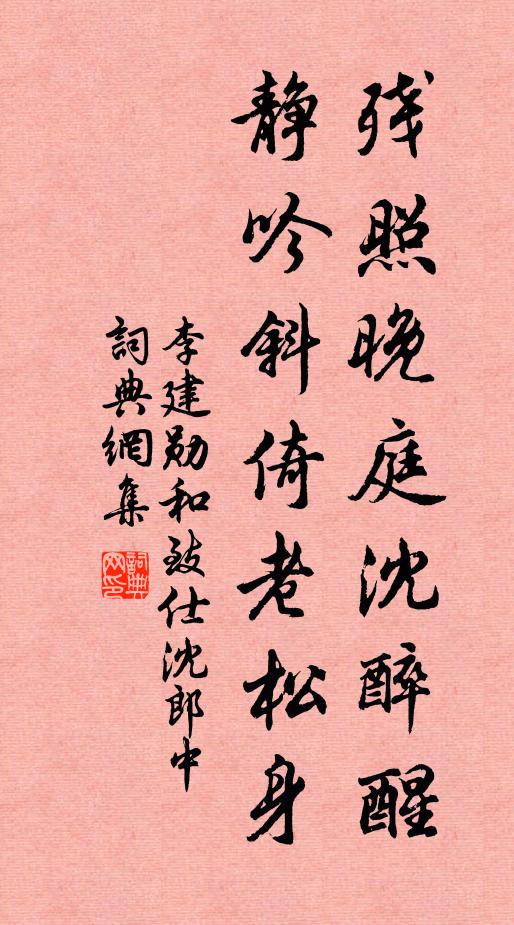 残照晚庭沈醉醒
静吟斜倚老松身
李建勋和致仕沈郎中
詞典網集
詞典
网印